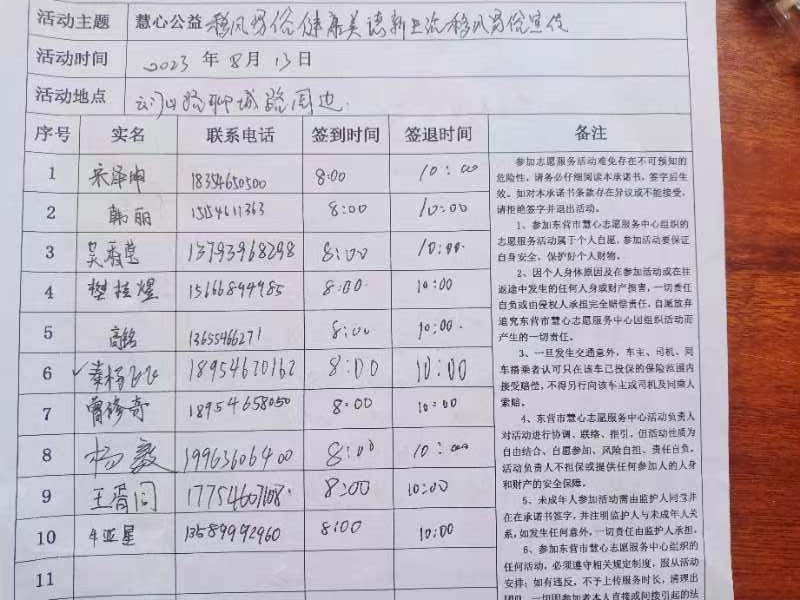 活动主题 慧心公益 移风易俗 健康美德新生活 移风易俗宣传
活动时间 2023 年 8 月 13 日
活动地点 聊城路周边
序号 实名 联系电话 签到时间 签退时间 备注
1 宋泽坤 18354650500 8:00 10:00
2 韩丽 15154611363 8:00 10:00
3 13793968298 8:00 10:00
4 樊桂煜 15666899985 8:00 10:00
5 高铭 13655466271 8:00 10:00
6 秦杨飞飞 18954620162 8:00 10:00
7 曹修奇 18954658050 8:00 10:00
8 杨毅 19963606400 8:00 10:00
9 王胥闫 17754607108 8:00 10:00
10 牛亚星 13589992960 8:00 10:00
11
参加志愿服务活动难免存在不可预知的
危险性，请务必仔细阅读本承诺书，签字后生
效。如对本承诺书条款存在异议或不能接受，
请拒绝签字并退出活动。
1、参加东营市慧心志愿服务中心组织的
志愿服务活动属于个人自愿，参加活动要保证
自身安全、保护好个人财物。
2、因个人身体原因及在参加活动或在往
返途中发生的任何人身或财产损害，一切责任
自负或由侵权人承担完全赔偿责任。自愿放弃
追究东营市慧心志愿服务中心因组织活动而
产生的一切责任。
3、一旦发生交通意外，车主、司机、同
车搭乘者认可只在该车已投保的保险范围内
接受赔偿，不得另行向该车主或司机及同乘人
索赔。
4、东营市慧心志愿服务中心活动负责人
对活动进行协调、联络、指引，但活动性质为
自由结合、自愿参加、风险自担、责任自负。
活动负责人不担保或提供任何参加人的人身
和财产的安全保障。
5、未成年人参加活动需由监护人同意并
在在承诺书签字，并注明监护人与未成年人关
系，如发生任何意外，一切责任由监护人承担。
6、参加东营市慧心志愿服务中心组织的
任何活动，必须遵守相关规定制度，服从活动
安排；如有违反，不予上传服务时长，清理出
团队，一切因参加者本人直接或间接引起的法